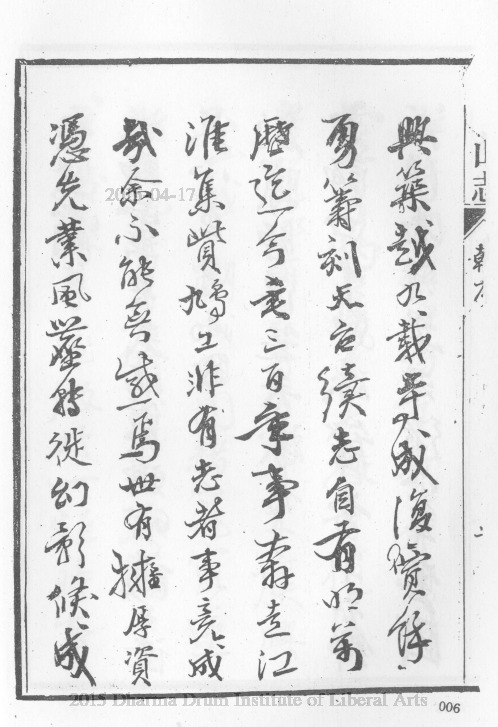 興築越九載畢成復實餘
勇籌刻天台續志自有明萬
歷迄今竟三百年事奔走江
淮集貲鳩工非有志者事竟成
哉余不能無感焉世有擁厚資
憑先業風塵轉徙幻影倏成
山志
2015-04-17
2015 Dharma Drum Institute of Liberal Arts
006